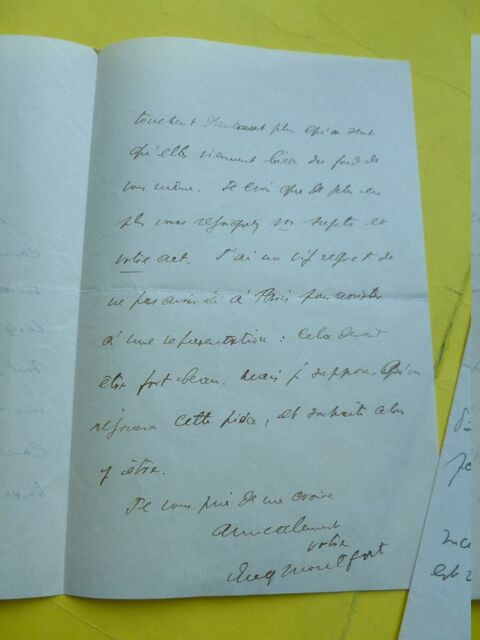 touchent d'autant plus qu'on sent
qu'elles viennent bien du fond de
vous même. Je crois que de plus en
plus vous rejoignez vos sujets et
votre art. J'ai un vif regret de
ne pas avoir été à Paris pour assister
à une représentation : cela devait
être fort beau. Mais je suppose qu'on
rejouera cette pièce, et souhaite alors
y être.
Je vous prie de me croire
amicalement
votre
Eug Montfort